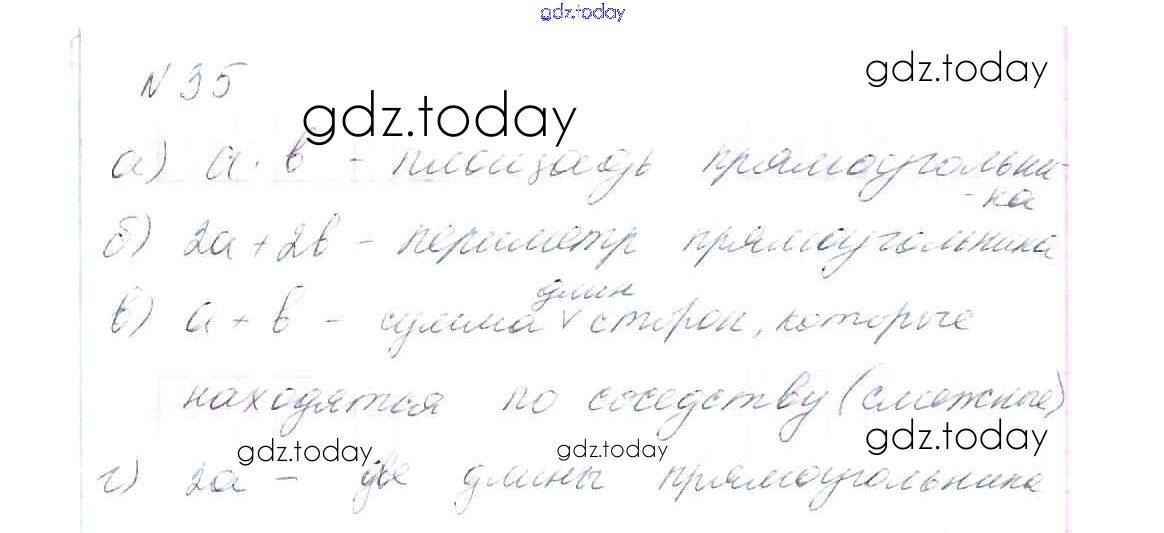 gdz.today
№ 35
gdz.today
gdz.today
а) a · b - площадь прямоугольни-
-ка
б) 2a + 2b - периметр прямоугольника
длин
в) a + b - сумма ∨ сторон, которые
находятся по соседству (смежные)
gdz.today
gdz.today
gdz.today
г) 2a - две длины прямоугольника